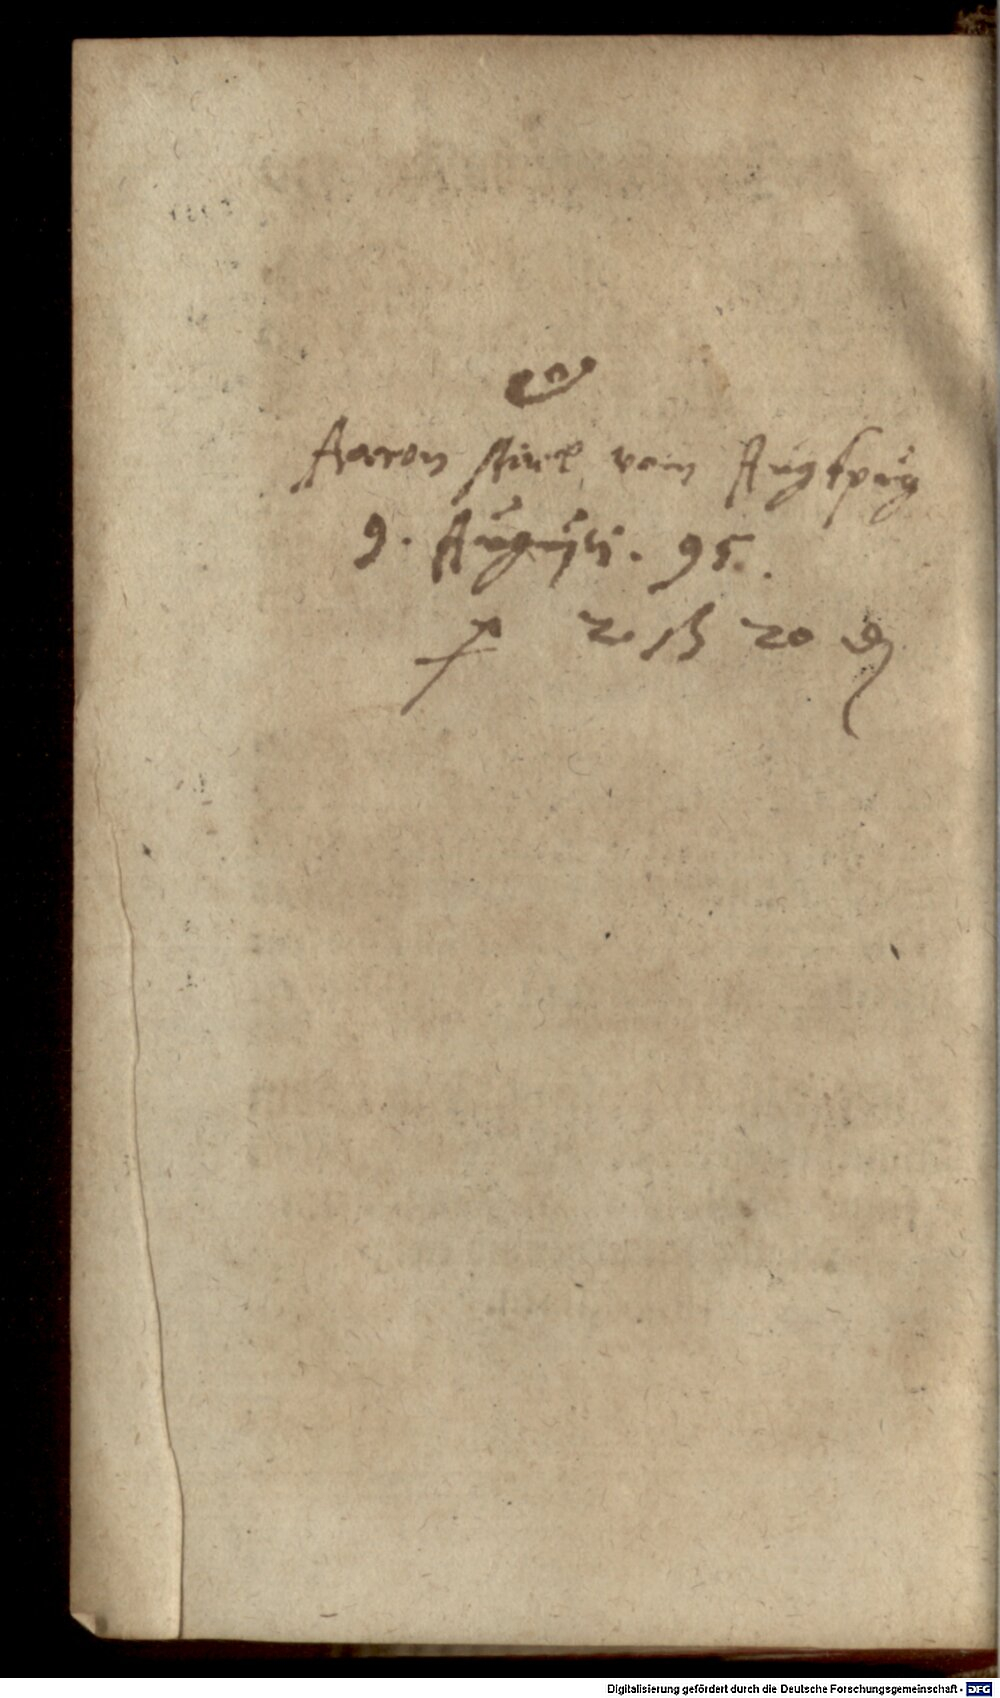 Aaron von Augspurg
9. Augusti. 95.
2 ß 20 ₰
Digitalisierung gefördert durch die Deutsche Forschungsgemeinschaft - DFG